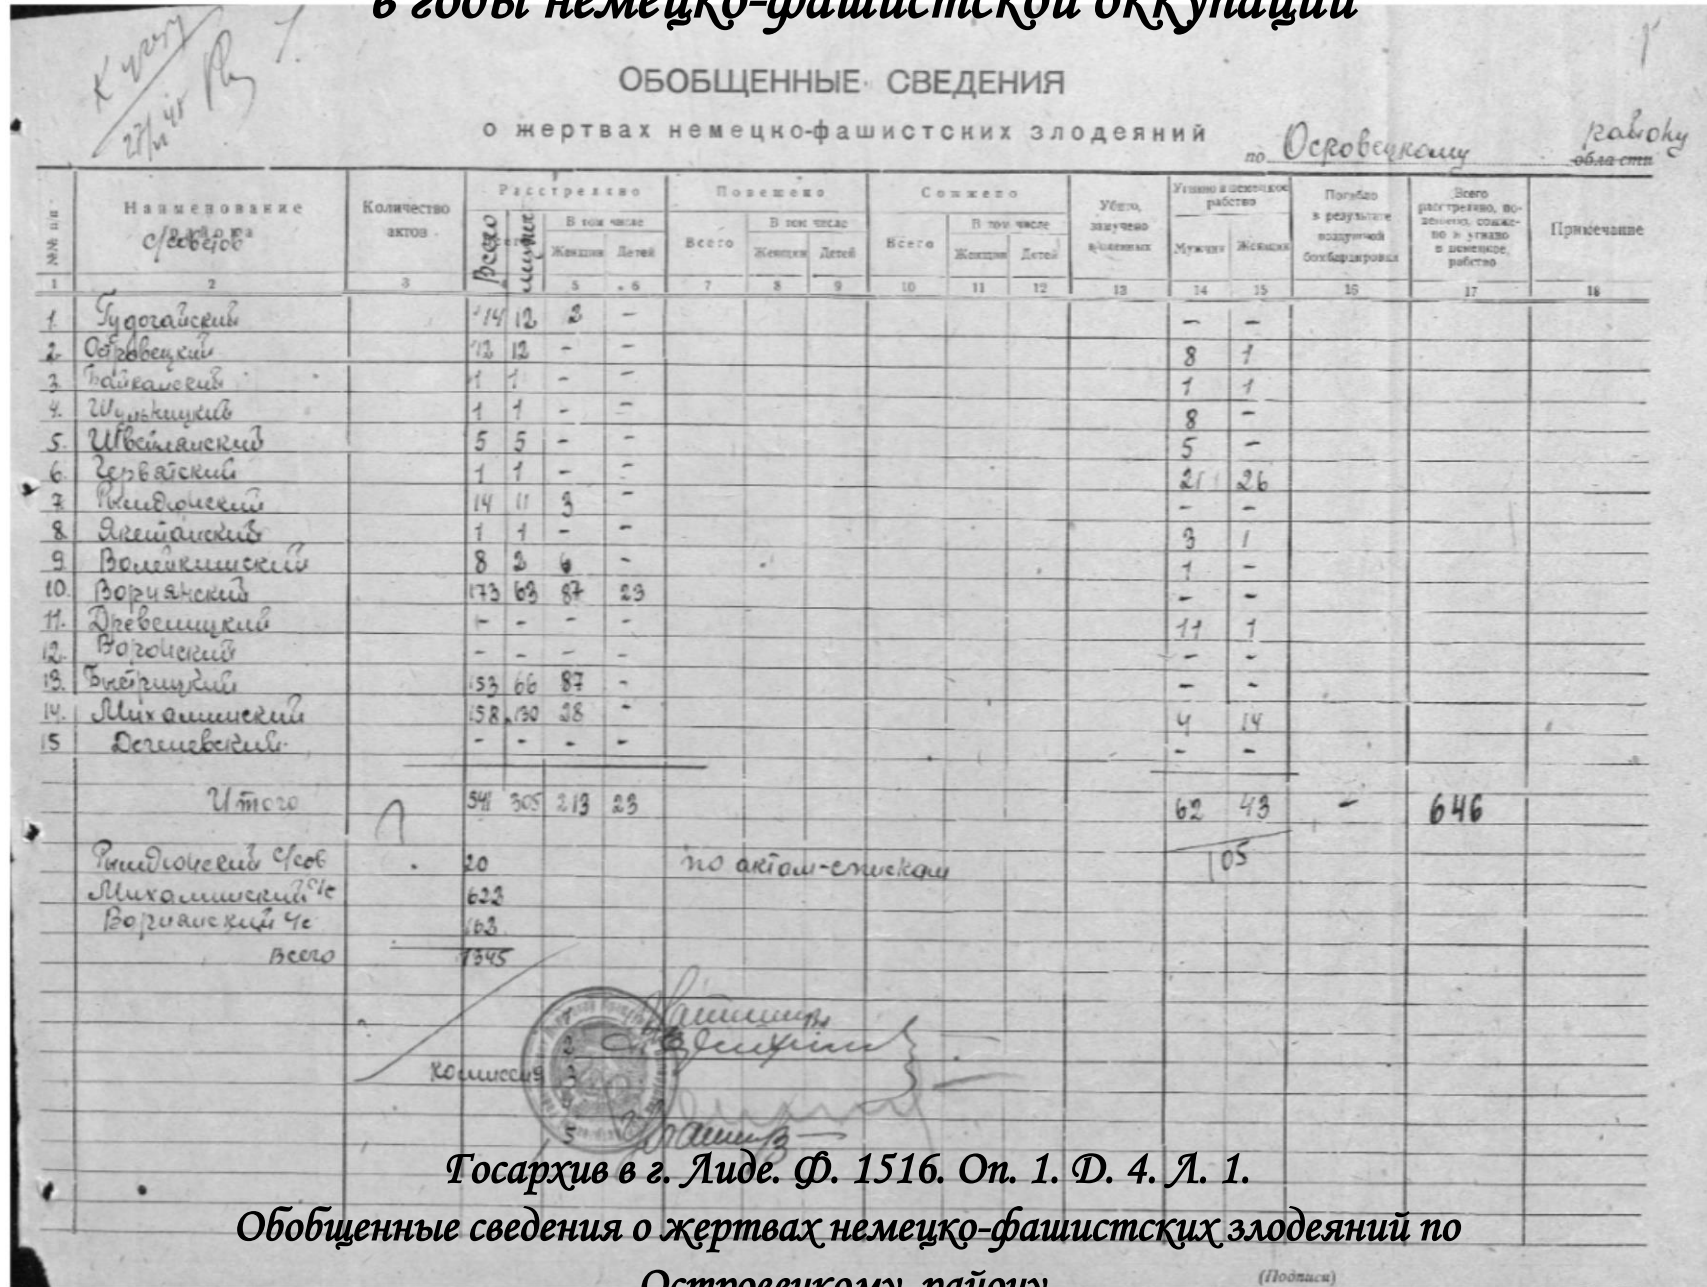 в годы немецко-фашистской оккупации
К
ОБОБЩЕННЫЕ СВЕДЕНИЯ
о жертвах немецко-фашистских злодеяний
по Осровецкому району области
№№ пп
Наименование района с/советов
Количество актов
Расстреляно
Всего
мужчин
В том числе
Женщин Детей
Повешено
Всего
В том числе
Женщин Детей
Сожжено
Всего
В том числе
Женщин Детей
Убито, замучено
Угнано в немецкое рабство
Мужчин Женщин
Погибло в результате воздушной бомбардировки
Всего расстреляно, повешено, сожжено и угнано в немецкое рабство
Примечание
1 2 3 4 5 6 7 8 9 10 11 12 13 14 15 16 17 18
1. Гудогайский 14 12 2 - - -
2. Островецкий 12 12 - - 8 1
3. 1 1 - - 1 1
4. Шульницкий 1 1 - - 8 -
5. Швейлянский 5 5 - - 5 -
6. Гервятский 1 1 - - 21 26
7. Рымдюнский 14 11 3 - - -
8. 1 1 - - 3 1
9. Волейкишский 8 2 6 - 1 -
10. Ворнянский 173 63 87 23 - -
11. Древеницкий - - - - 11 1
12. Воронский - - - - - -
13. Быстрицкий 153 66 87 - - -
14. Михалишский 158 130 28 - 4 14
15 - - - - - -
Итого 541 305 213 23 62 43 - 646
105
Рымдюнский с/сов 20 по актам-спискам
Михалишский с/с 622
Ворнянский с/с 162
Всего 1345
комиссия
2
3
5
Госархив в г. Лиде. Ф. 1516. Оп. 1. Д. 4. Л. 1.
Обобщенные сведения о жертвах немецко-фашистских злодеяний по
Островецкому району
(Подписи)